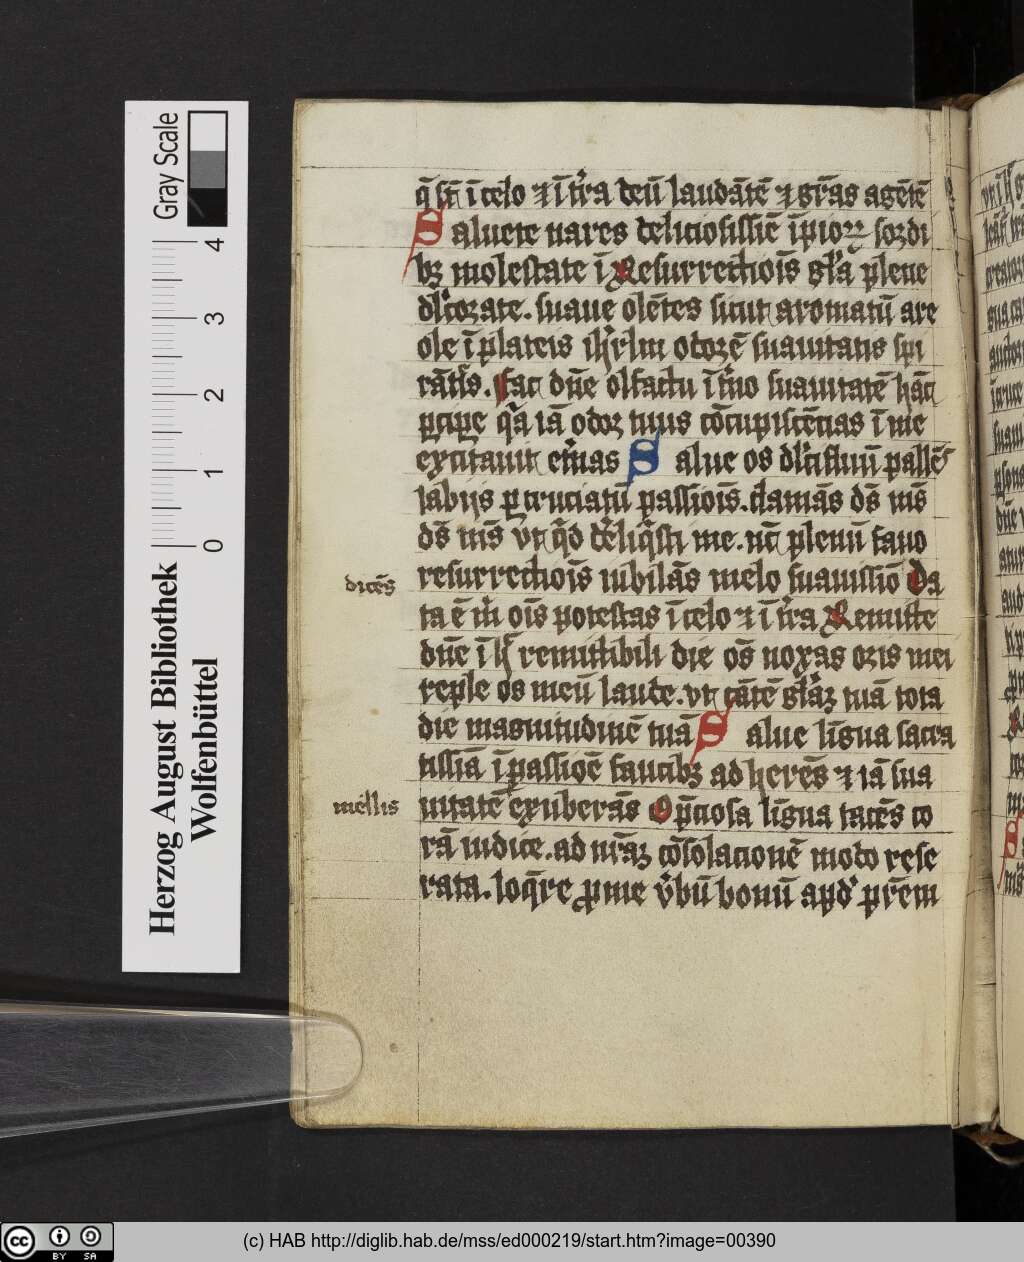 Gray Scale
4
3
2
1
0
Herzog August Bibliothek
Wolfenbüttel
q̄ st̄ ī celo ⁊ ī tr̄a deū laudātē ⁊ gr̄as agētē
Saluete nares deliciosissīe ī pioꝝ sordi
bꝫ molestate ī Resurrectiōis gl̄a plene
dl̄corate. suaue olētes sicut aromatū are
ole ī plateis ihr̄lm odorē suauitatis spi
rātis. fac dn̄e olfactu ī suauitatē hāc
ꝑcipe q̄a iā odor tuus cōcupiscētias ī me
excitauit Salue os dl̄cifluū pallēs
labijs ꝑ cruciatū passiōis. clamās ds̄ ms̄
ds̄ ms̄ vt q̄d dēliq̄sti me. nc̄ plenū fauo
dicēs
resurrectiōis iubilās melo suauissīo Da
ta ē m̄ ōis potestas ī celo ⁊ ī tr̄a Remitte
dn̄e ī remittibili die os̄ noxas oris mei
reple os meū laude. vt cātē gl̄aꝫ tuā tota
die magnitudinē tuā Salue līgua sacra
tissīa ī passiōe faucibꝫ ad herēs ⁊ iā sua
mellis
uitatē exuberās O p̄ciosa līgua tacēs co
rā iudice. ad nr̄aꝫ cōsolacionē modo rese
rata. loq̄re ꝓ me v̄bū bonū apd' pr̄em
(c) HAB http://diglib.hab.de/mss/ed000219/start.htm?image=00390
cc
BY SA